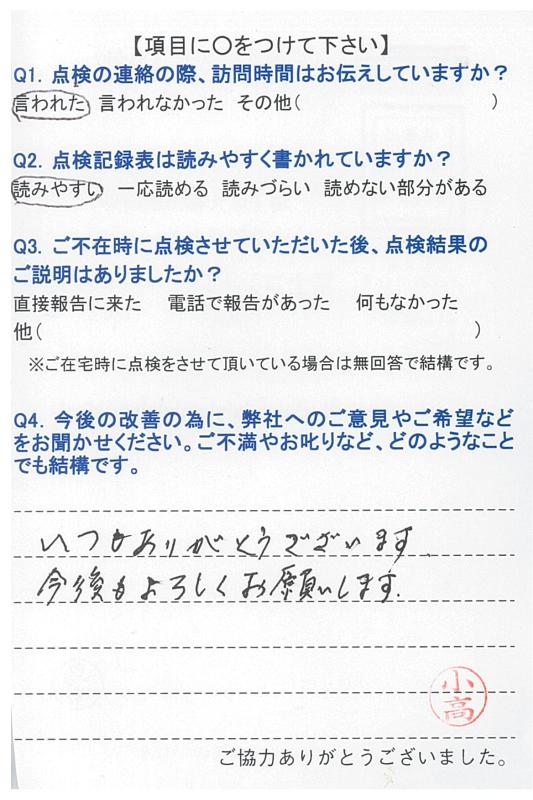 【項目に〇をつけて下さい】
Q1. 点検の連絡の際、訪問時間はお伝えしていますか？
言われた 言われなかった その他( )
Q2. 点検記録表は読みやすく書かれていますか？
読みやすい 一応読める 読みづらい 読めない部分がある
Q3. ご不在時に点検させていただいた後、点検結果の
ご説明はありましたか？
直接報告に来た 電話で報告があった 何もなかった
他( )
※ご在宅時に点検をさせて頂いている場合は無回答で結構です。
Q4. 今後の改善の為に、弊社へのご意見やご希望など
をお聞かせください。ご不満やお叱りなど、どのようなこと
でも結構です。
いつもありがとうございます.
今後もよろしくお願いします.
小高
ご協力ありがとうございました。